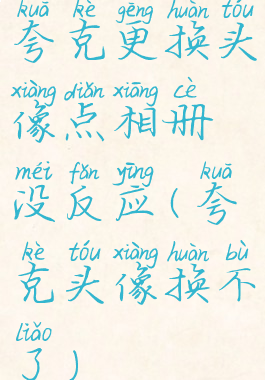 kuā kè gēng huàn tóu
夸克更换头
xiàng diǎn xiāng cè
像点相册
méi fǎn yīng kuā
没反应(夸
kè tóu xiàng huàn bù
克头像换不
liǎo
了)